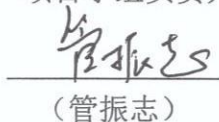 管振志
（管振志）